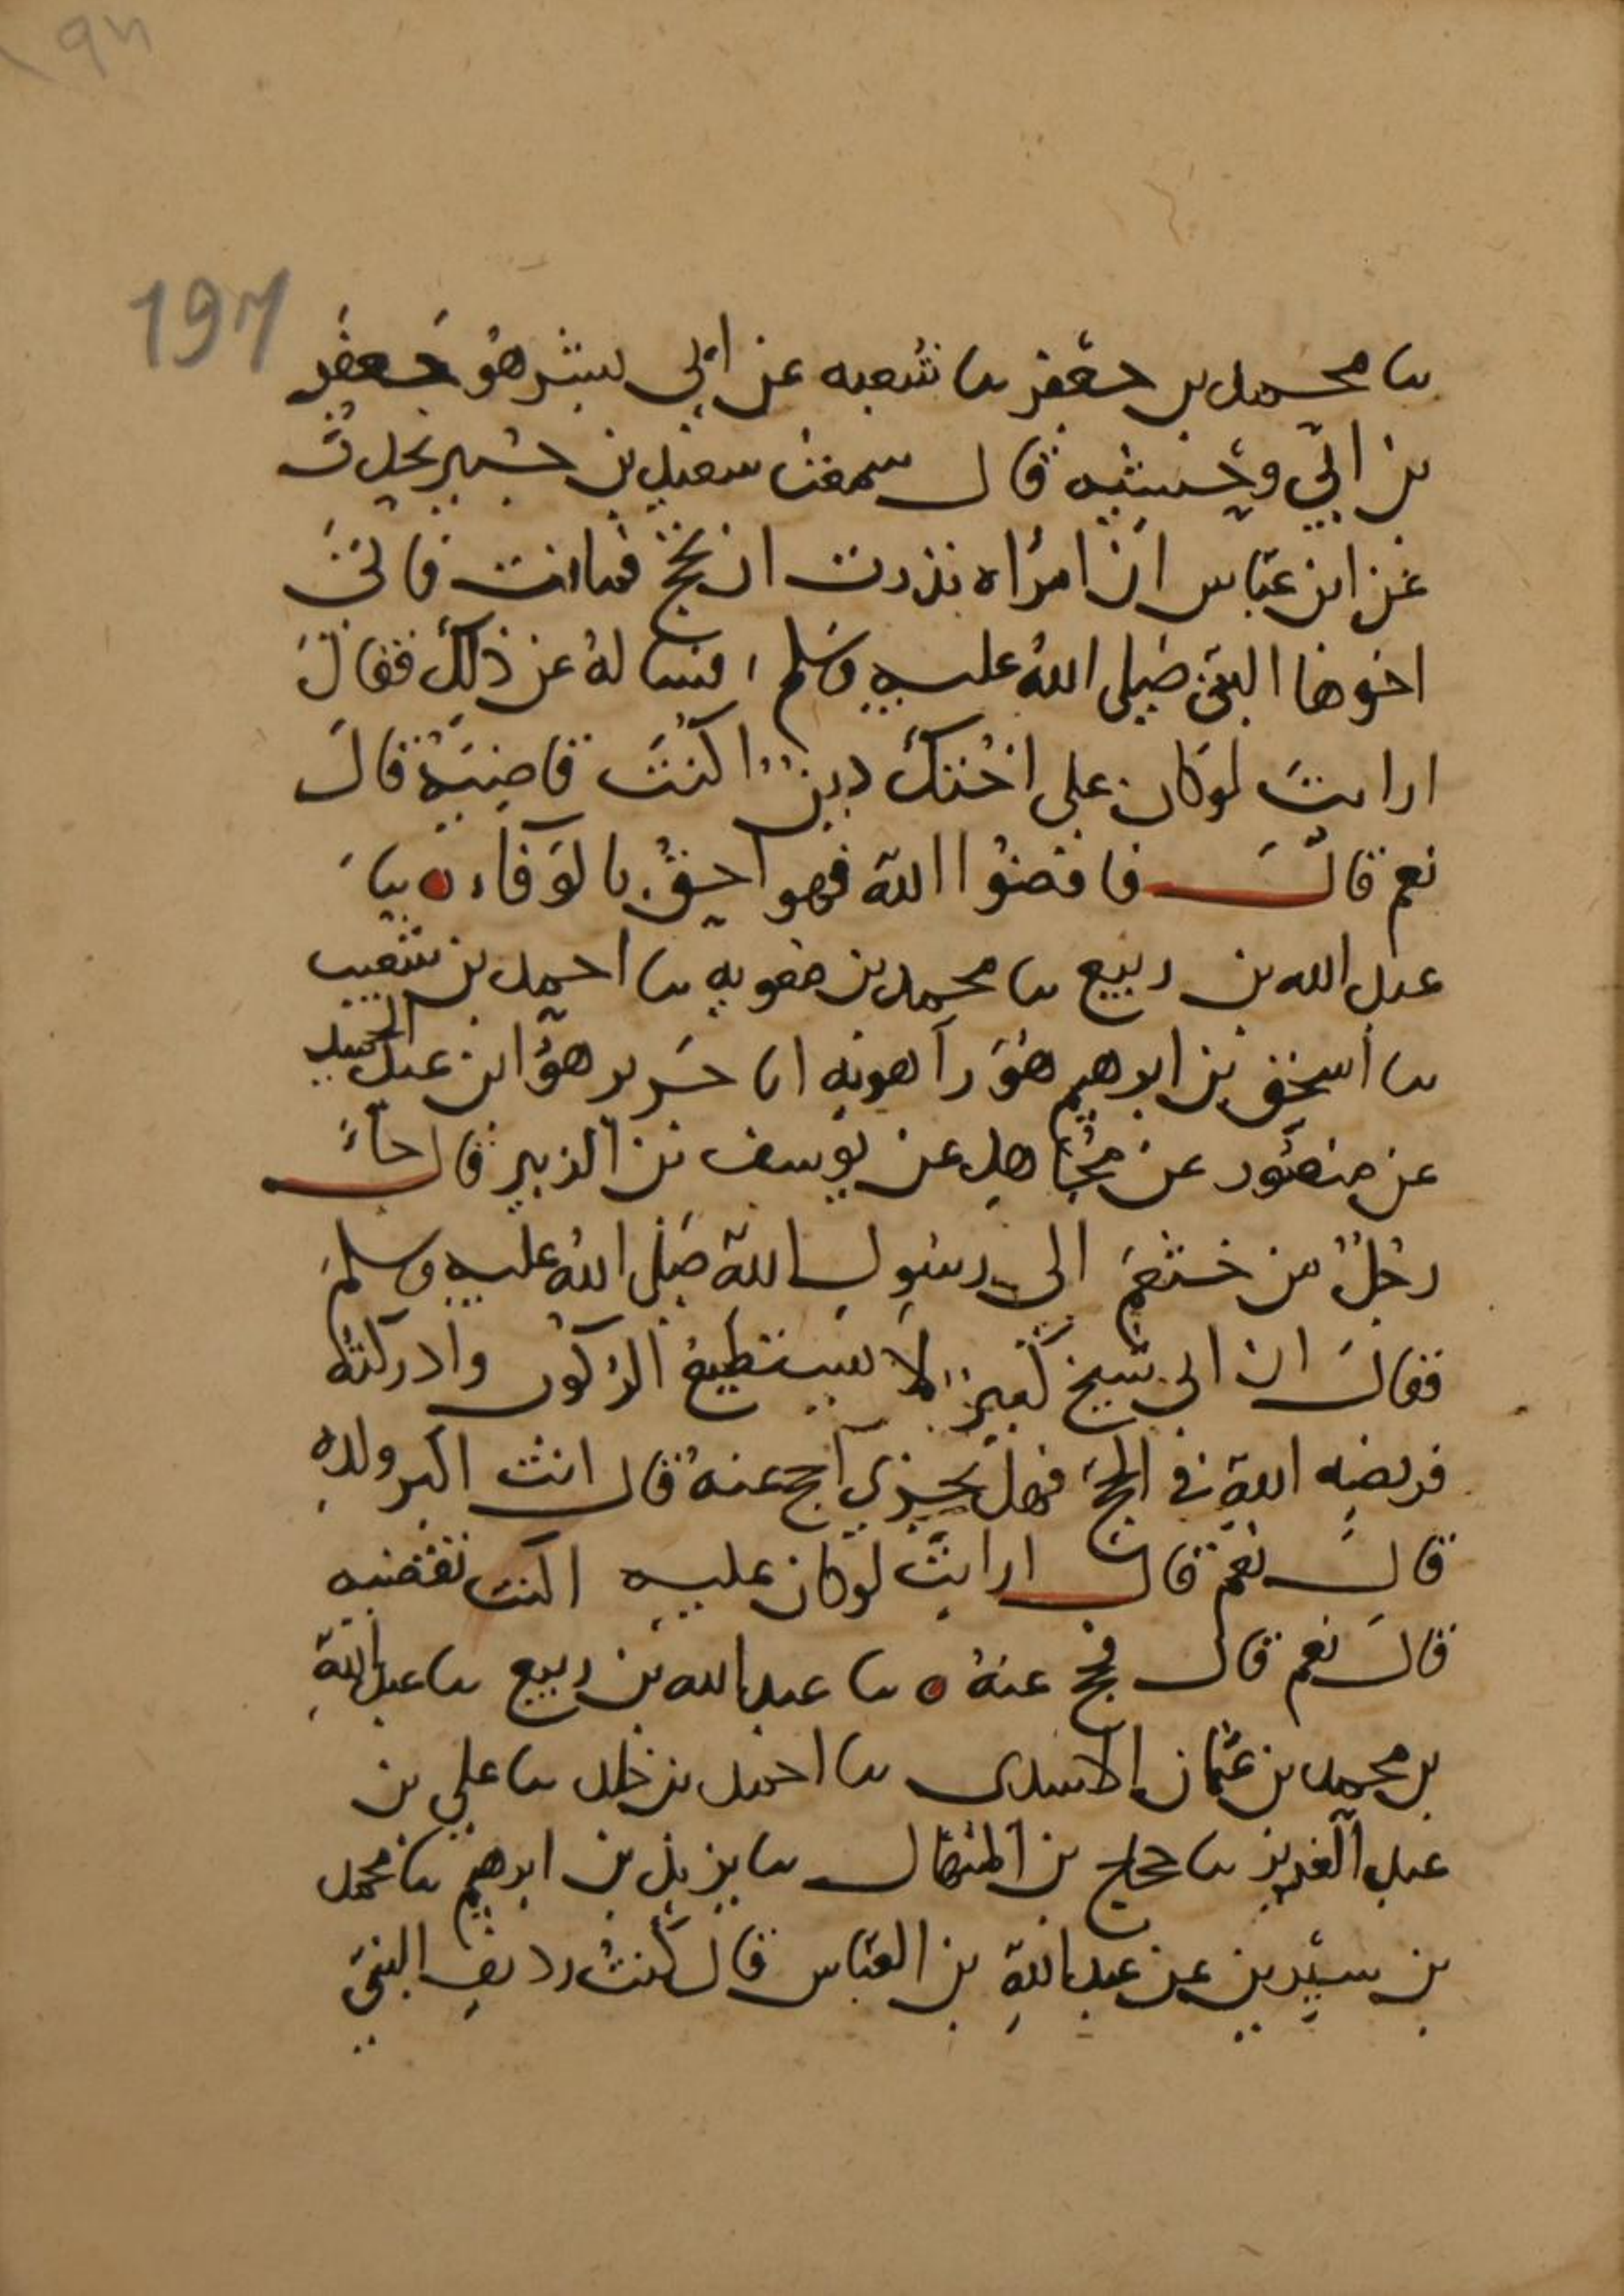 197
نا محمد بن جعفر نا شعبه عن ابي بشر هو جعفر
بن ابي وحشيه قال سمعت سعيد بن جبير يحدث
عن ابن عباس ان امراه نذرت ان تحج فماتت فاتى
اخوها النبي صلى الله عليه وسلم، فساله عن ذلك فقال
ارايت لو كان على اختك دين اكنت قاضيه قال
نعم قال فاقضوا الله فهو احق بالوفاء ه نا
عبد الله بن ربيع نا محمد بن معويه نا احمد بن شعيب
نا اسحق بن ابرهيم هو راهويه انا جرير هو ابن عبد الحميد
عن منصور عن مجاهد عن يوسف بن الزبير قال جاء
رجل من خثعم الى رسول الله صلى الله عليه وسلم
فقال ان ابي شيخ كبير لا يستطيع الركوب وادركته
فريضه الله في الحج فهل يجزي ان احج عنه قال انت اكبر ولده
قال نعم قال ارايت لو كان عليه اكنت تقضيه
قال نعم قال فحج عنه ه نا عبد الله بن ربيع نا عبد الله
بن محمد بن عثمان الاسدى نا احمد بن خلد نا علي بن
عبد العزيز نا حجاج بن المنهال نا يزيد بن ابرهيم نا محمد
بن سيرين عن عبد الله بن العباس قال كنت رديف النبي